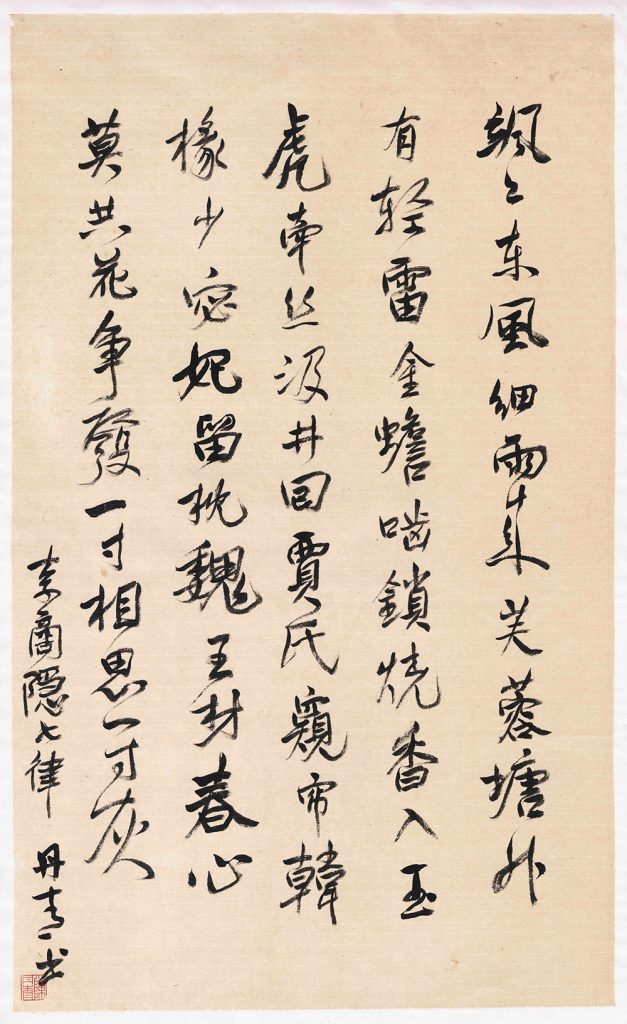 飒々东風细雨来芙蓉塘外
有轻雷金蟾啮鎖烧香入玉
虎牵丝汲井回賈氏窺帘韓
掾少宓妃留枕魏王材春心
莫共花争發一寸相思一寸灰
李商隐七律 丹青书